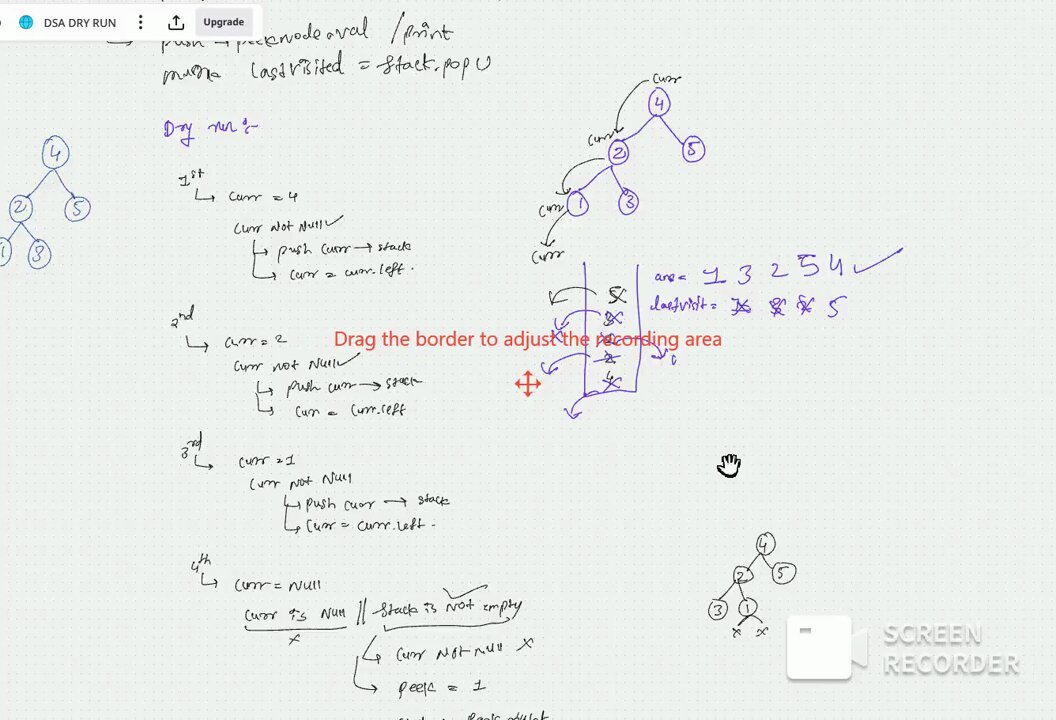 DSA DRY RUN
Upgrade
push → peeknode.val / print
lastvisited = stack.pop()
Dry run:-
1st
curr = 4
curr Not Null ✓
push curr → stack
curr = curr.left.
2nd
curr = 2
curr not Null ✓
push curr → stack
curr = curr.left
3rd
curr = 1
curr Not Null
push curr → stack
curr = curr.left.
4th
curr = Null
curr is Null || stack is Not empty ✓
x
curr Not Null x
peek = 1
4
2 5
1 3
curr
4
curr
2 5
curr
1 3
curr
ans = 1 3 2 5 4 ✓
lastvisit = 5
5
3
2
4
Drag the border to adjust the recording area
4
2 5
3 1
x x
SCREEN
RECORDER